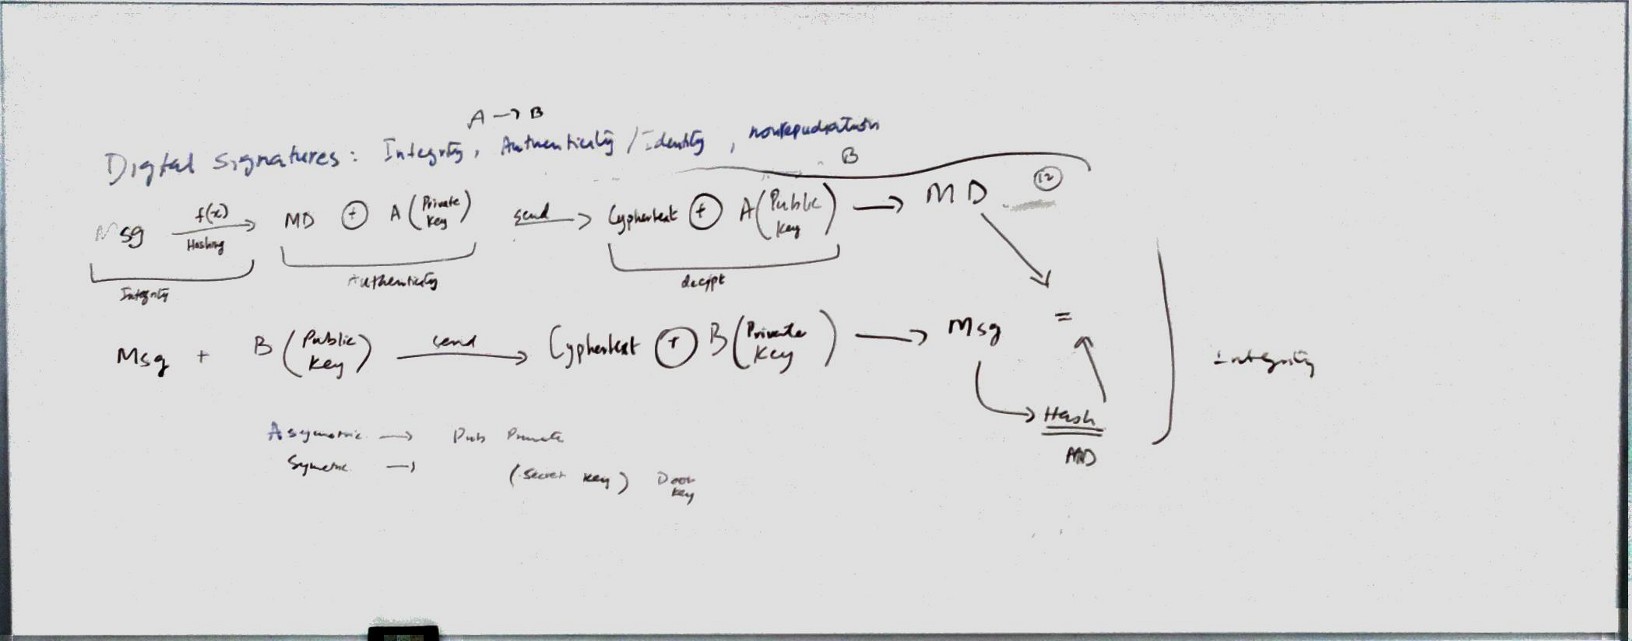 A → B
Digital Signatures: Integrity, Authenticity / Identity, nonrepudiation
B
Msg f(x) Hashing → MD + A (Private Key) send → Cyphertext + A (Public Key) → MD 12
Integrity Authenticity decrypt
Msg + B (Public Key) send → Cyphertext + B (Private Key) → Msg =
Integrity
Hash
MD
Asymetric → Pub Private
Symetric → (Secret Key) Door Key